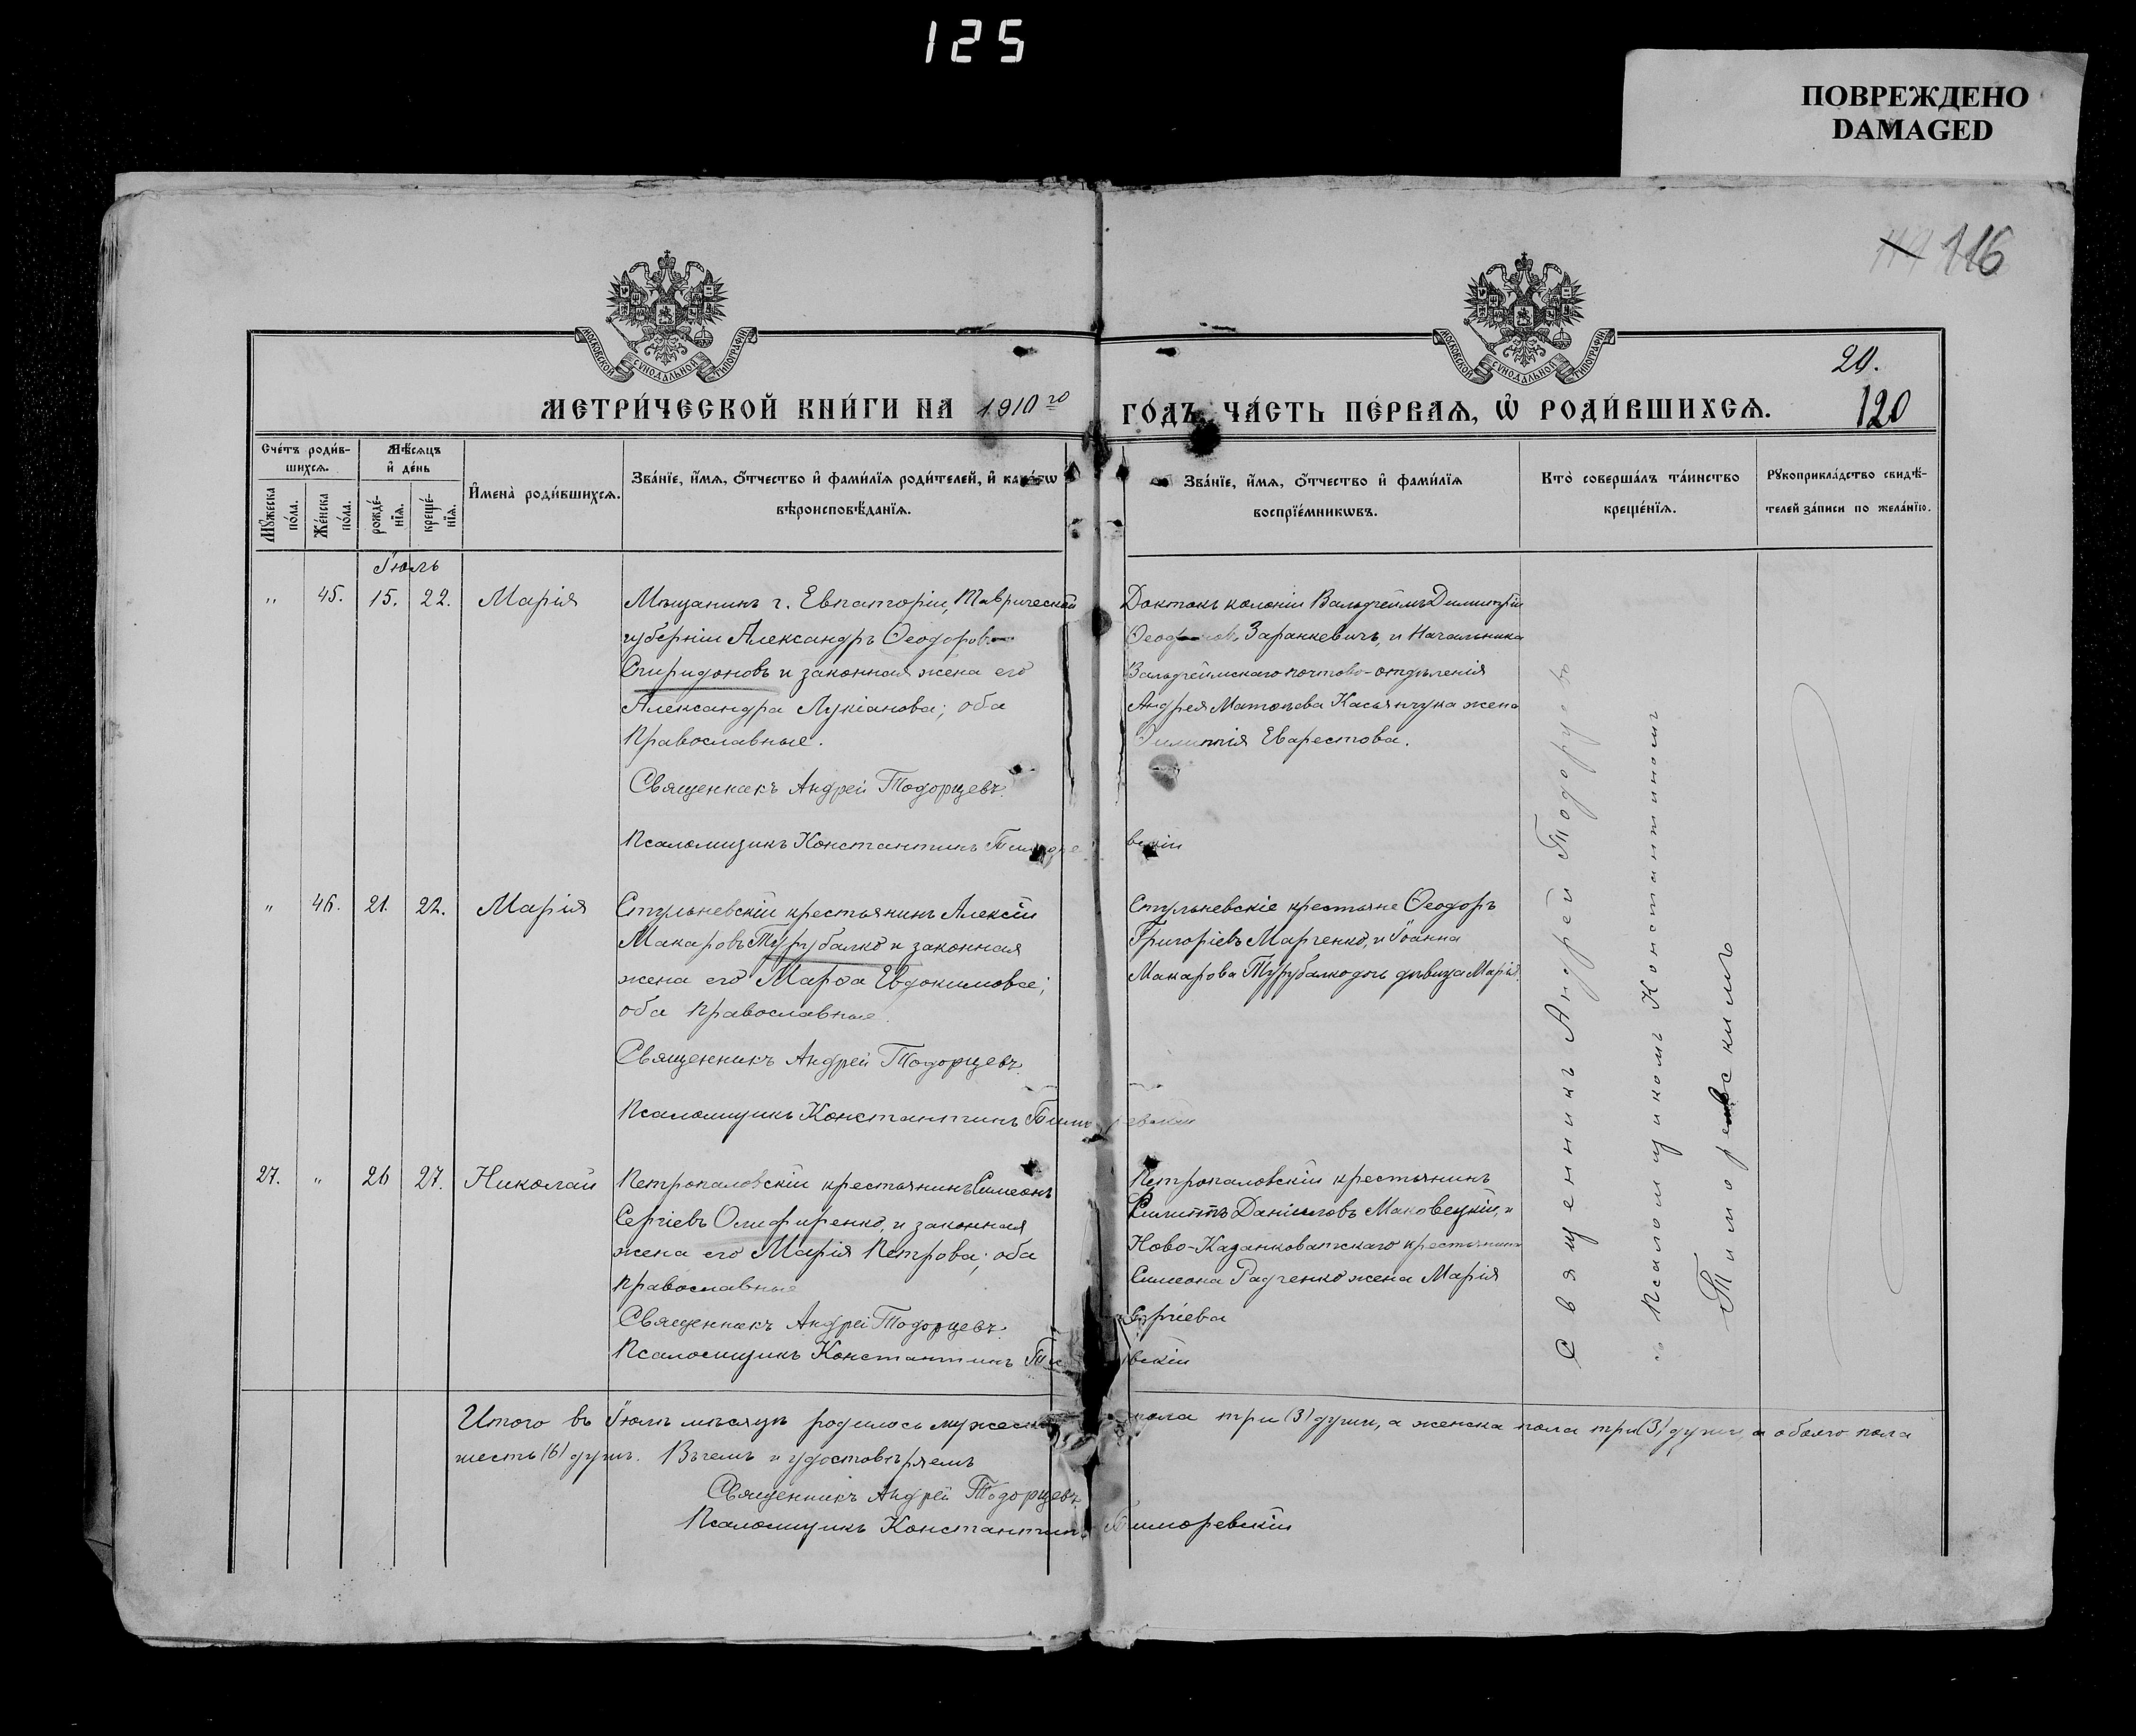 125
ПОВРЕЖДЕНО
DAMAGED
116
МОСКОВСКОЙ СѴНОДАЛЬНОЙ ТИПОГРАФІИ
МОСКОВСКОЙ СѴНОДАЛЬНОЙ ТИПОГРАФІИ
20.
МЕТРИ́ЧЕСКОЙ КНИ́ГИ НА 1910го ГО́ДЪ, ЧА́СТЬ ПЕ́РВАѦ, Ѡ҆ РОДИ́ВШИХСѦ.
120
Сче́тъ роди́в-
шихсѧ.
Мꙋ́жеска по́ла.
Же́нска по́ла.
Мѣ́сѧцъ
и҆ де́нь
рожде́-
нїѧ.
креще́-
нїѧ.
И҆мена̀ роди́вшихсѧ.
Зва́нїе, и҆́мѧ, ѻ҆́тчество и҆ фами́лїѧ роди́телей, и҆ како́гѡ
вѣроисповѣ́данїѧ.
Зва́нїе, и҆́мѧ, ѻ҆́тчество и҆ фами́лїѧ
воспрїе́мникѡвъ.
Кто̀ соверша́лъ та́инство
креще́нїѧ.
Рꙋкоприкла́дство свидѣ́-
телей за́писи по жела́нїю.
Іюль
" 45. 15. 22. Марія
Мѣщанинъ г. Евпаторіи, Таврической
губерніи Александръ Ѳеодоровъ
Спиридоновъ и законная жена его
Александра Лукіанова; оба
православные.
Священникъ Андрей Тодорцевъ.
Псаломщикъ Константинъ
Докторъ колоніи Вальдгеймъ Димитрій
Заранкевичъ, и Начальника
Вальдгеймскаго почтово-отдѣленія
Андрея Матѳѣева Касьянчука жена
Еварестова.
вскій
" 46. 21. 22. Марія
Стульневскій крестьянинъ Алексій
Макаровъ Турубалко и законная
жена его Марѳа Евдокимова;
оба православные.
Священникъ Андрей Тодорцевъ.
Псаломщикъ Константинъ Тиморевскій
Стульневскіе крестьяне Ѳеодоръ
Григоріевъ Марченко, и Іоанна
Макарова Турубалко дочь дѣвица Марія.
27. " 26 27. Николай
Петропаловскій крестьянинъ Симеонъ
Сергіевъ Олифиренко, и законная
жена его Марія Петрова; оба
православные
Священникъ Андрей Тодорцевъ.
Псаломщикъ Константинъ
Петропаловскій крестьянинъ
Филиппъ Даніиловъ Маковецкій, и
крестьянина
Симеона Радченко жена Марія
Сергіева
вскій
Священникъ Андрей Тодорцевъ
со Псаломщикомъ Константиномъ
Тиморевскимъ
Итого въ Іюль мѣсяцѣ родилось мужеска пола три (3) души, а женска пола три (3) души, а обоего пола
шесть (6) душъ. Въ чемъ и удостовѣряемъ
Священникъ Андрей Тодорцевъ
Псаломщикъ Константинъ Тиморевскій